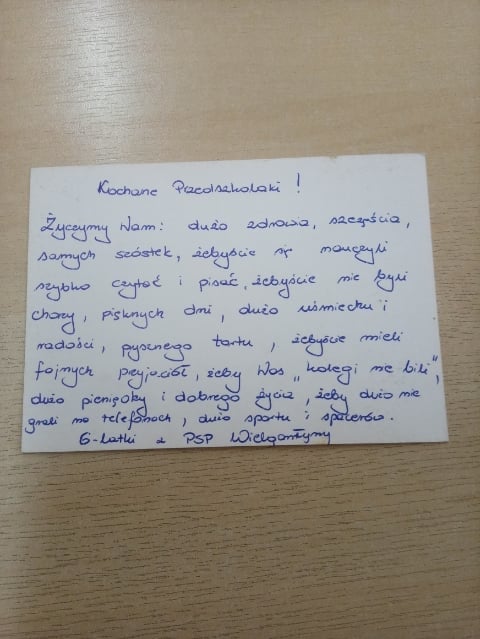 Kochane Przedszkolaki!
Życzymy Wam: dużo zdrowia, szczęścia,
samych szóstek, żebyście się nauczyli
szybko czytać i pisać, żebyście nie byli
chorzy, pięknych dni, dużo uśmiechu i
radości, pysznego tortu, żebyście mieli
fajnych przyjaciół, żeby Was „kolegi nie bili",
dużo pieniążky i dobrego życia, żeby dużo nie
grali na telefonach, dużo sportu i spacerów.
6-latki z PSP Wielgomłyny